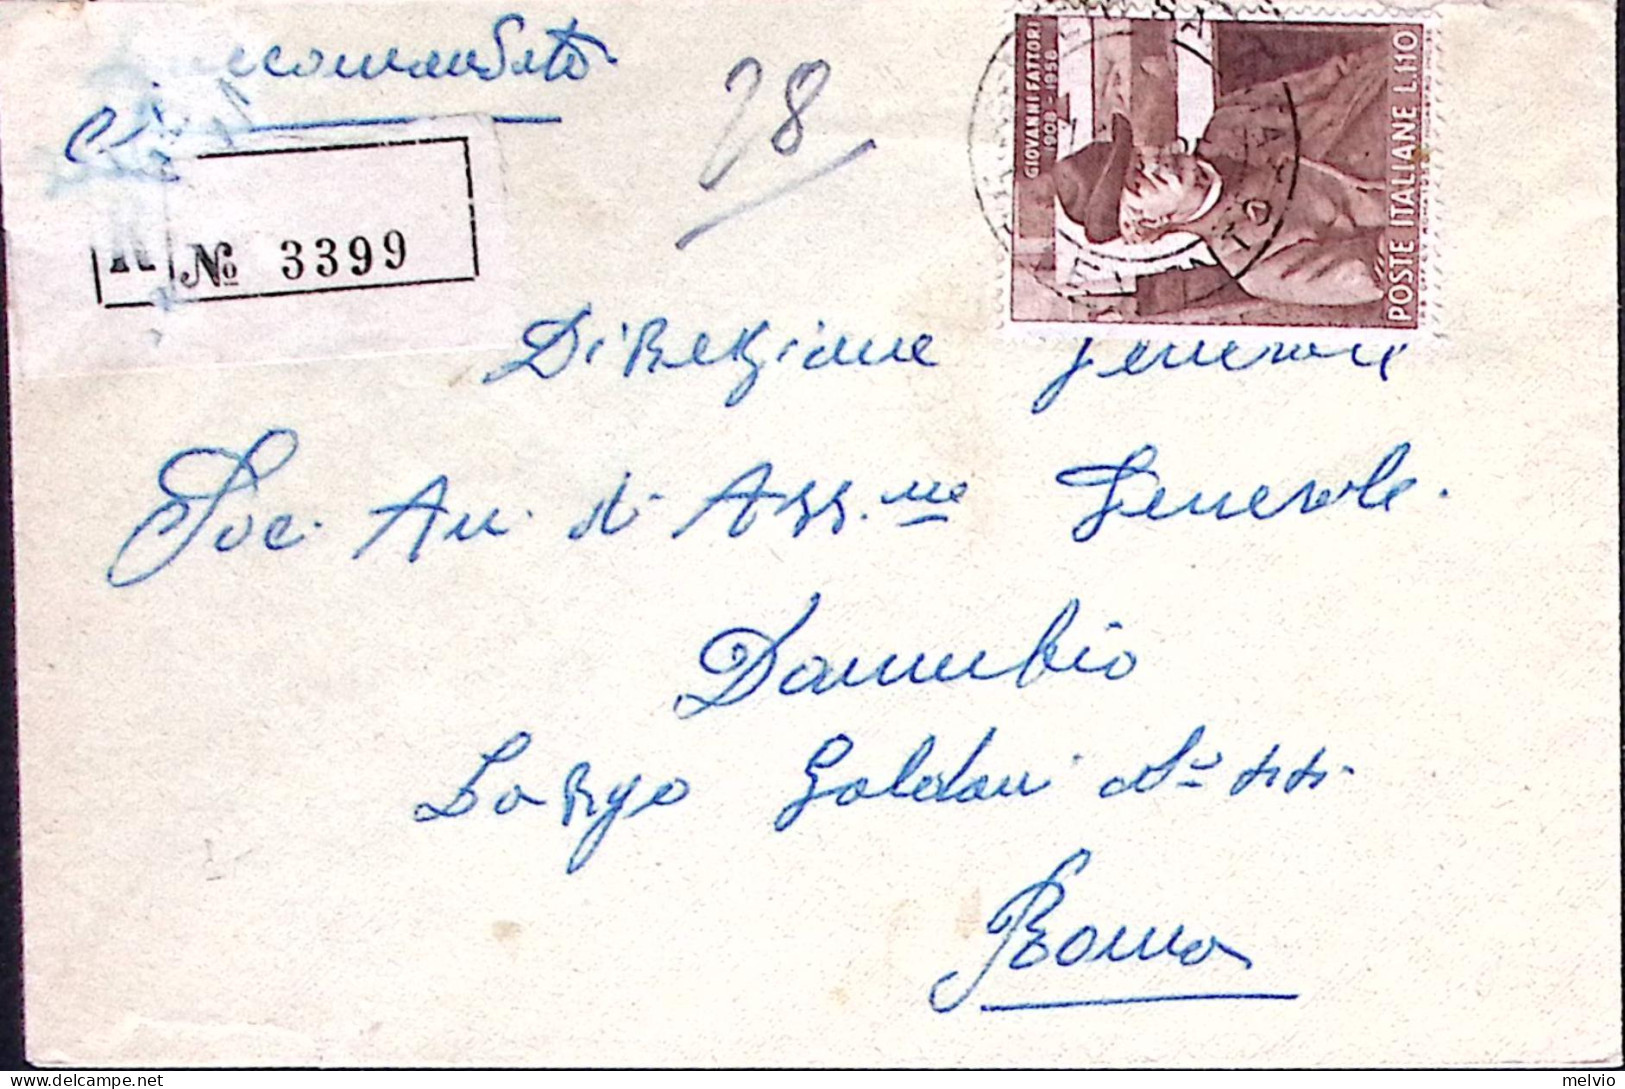 Raccomandata
28
R № 3399
GIOVANNI FATTORI
1908 - 1958
POSTE ITALIANE L.110
Direzione Generale
Soc. An. di Ass.ne Generale.
Danubio
Largo Goldoni N°
Roma
melvio